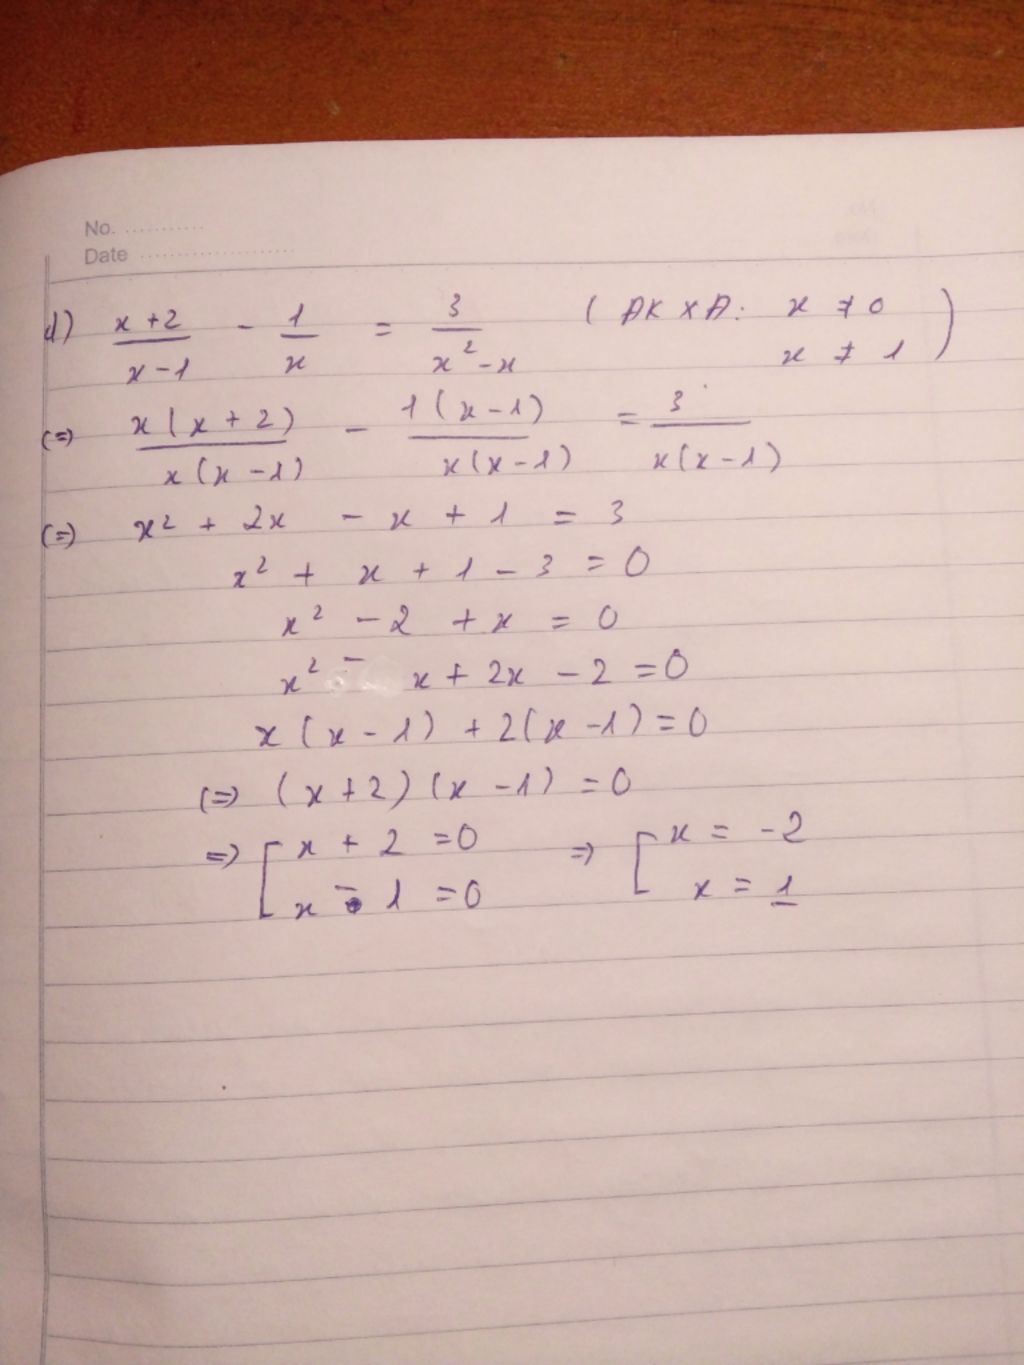 No. ...........
Date ......................
d) \frac{x+2}{x-1} - \frac{1}{x} = \frac{3}{x^2-x} ( ĐKXĐ: x ≠ 0
x ≠ 1 )
(=) \frac{x(x+2)}{x(x-1)} - \frac{1(x-1)}{x(x-1)} = \frac{3}{x(x-1)}
(=) x² + 2x - x + 1 = 3
x² + x + 1 - 3 = 0
x² - 2 + x = 0
x² - x + 2x - 2 = 0
x(x-1) + 2(x-1) = 0
(=) (x+2)(x-1) = 0
=) [ x + 2 = 0 =) [ x = -2
x - 1 = 0 x = 1